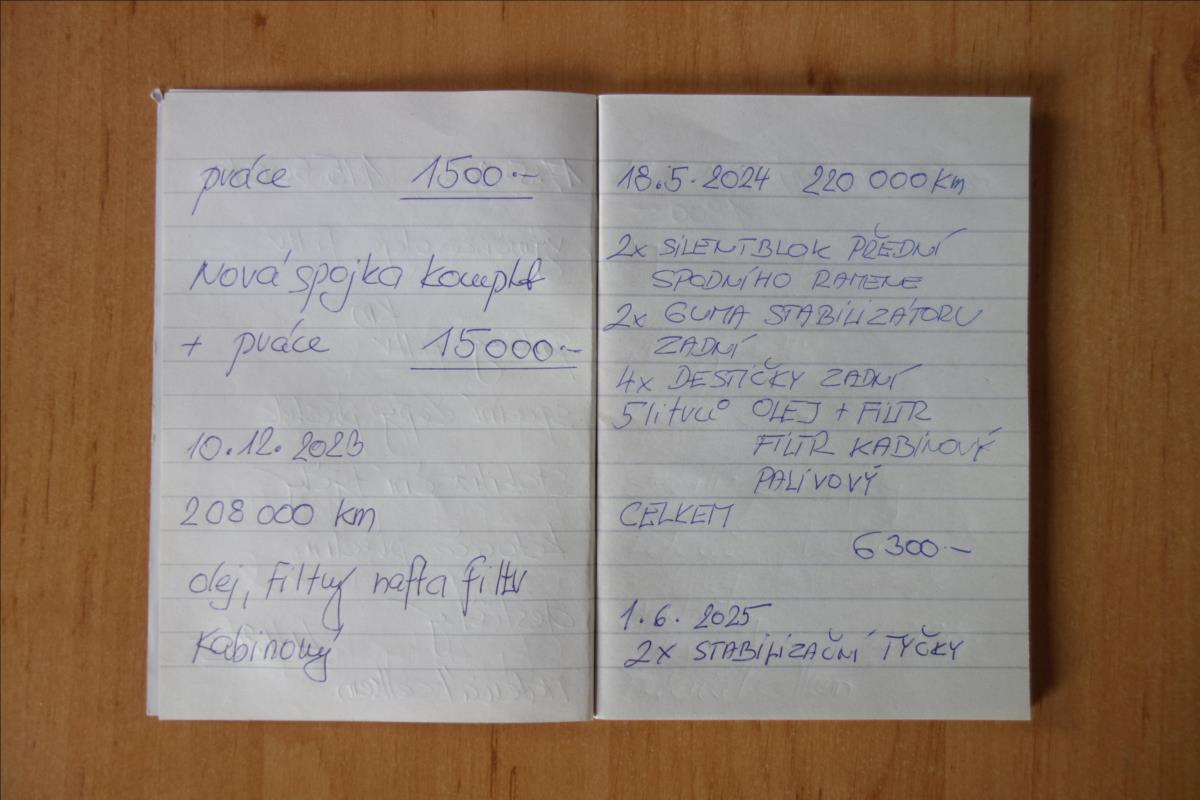 práce 1500.-
Nová spojka komplet
+ práce 15000.-
10.12.2023
208 000 km
olej, filtry nafta filtr
Kabinový
18.5.2024 220 000 Km
2x SILENTBLOK PŘEDNÍ
SPODNÍHO RAMENE
2x GUMA STABILIZÁTORU
ZADNÍ
4x DESTIČKY ZADNÍ
5 litrů OLEJ + FILTR
FILTR KABINOVÝ
PALIVOVÝ
CELKEM
6 300.-
1.6. 2025
2x STABILIZAČNÍ TYČKY